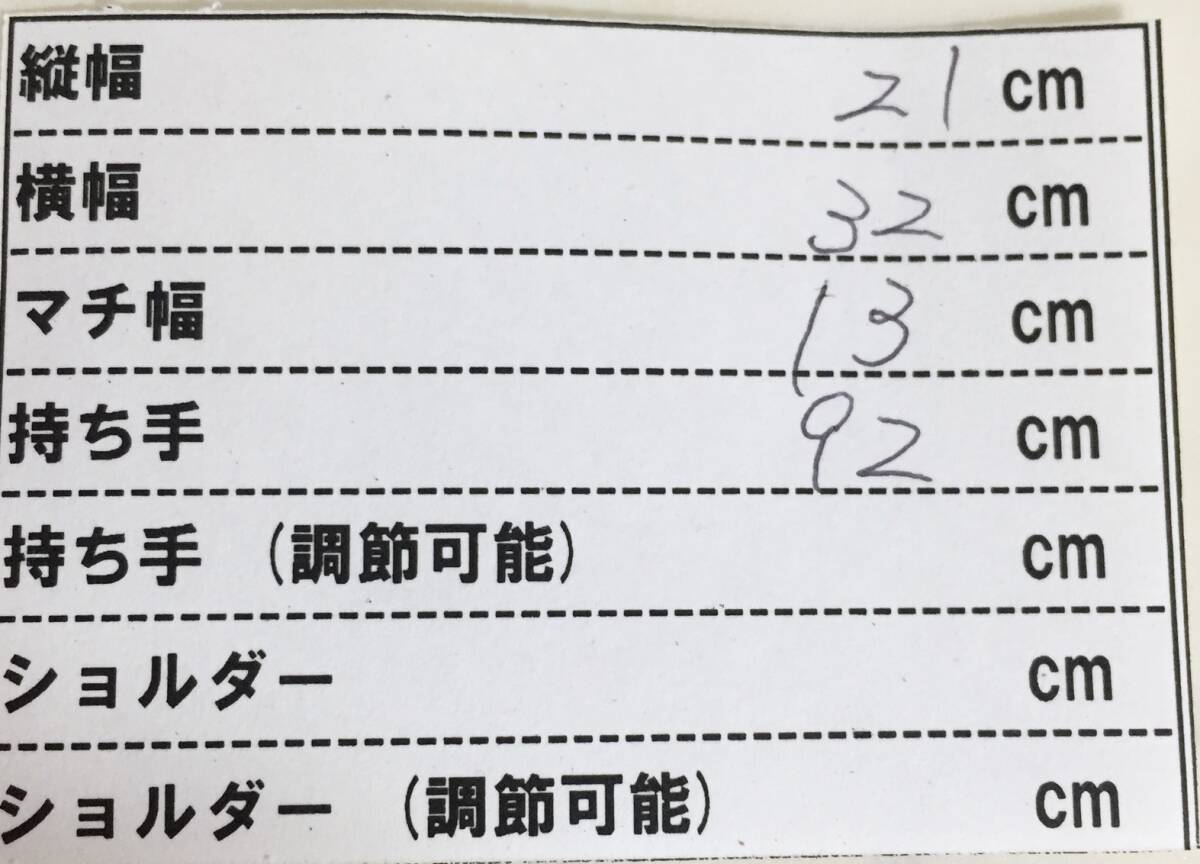 縦幅 21 cm
横幅 32 cm
マチ幅 13 cm
持ち手 92 cm
持ち手 (調節可能) cm
ショルダー cm
ショルダー (調節可能) cm